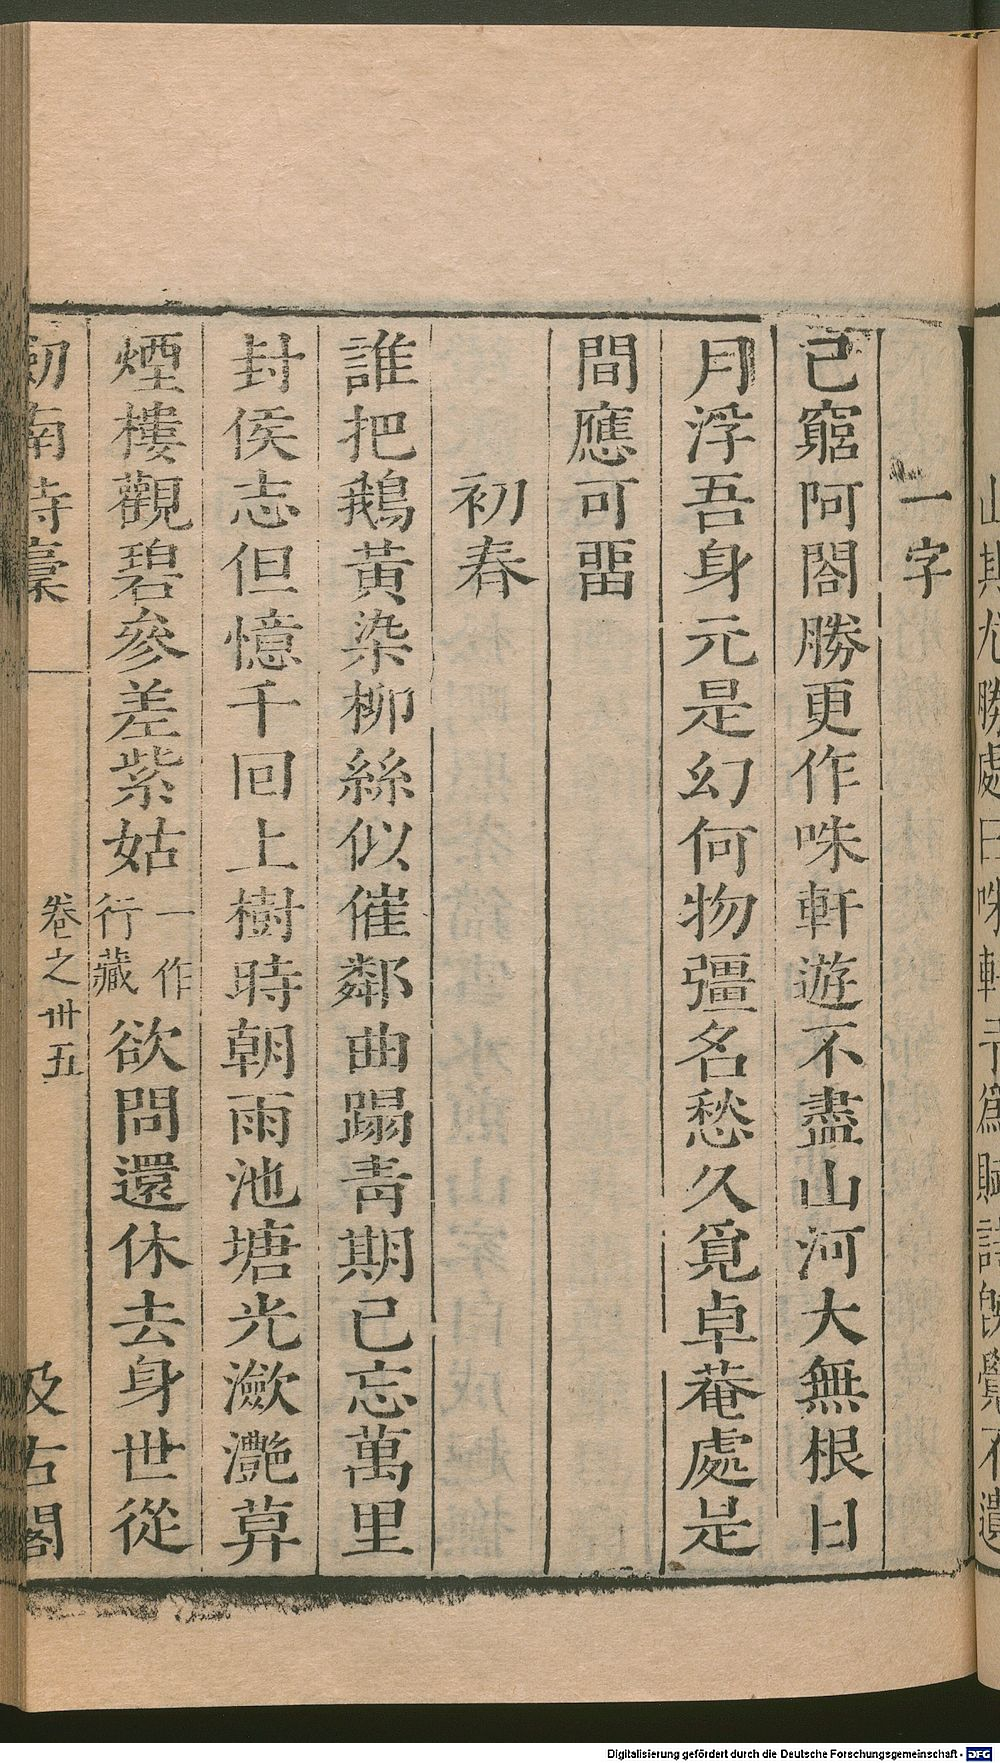 山期尤勝處曰咪軒予爲賦詩旣覺不遺
一字
已窮阿閣勝更作咪軒遊不盡山河大無根日
月浮吾身元是幻何物彊名愁久覓卓菴處是
間應可畱
初春
誰把鵝黃染柳絲似催鄰曲踢青期已忘萬里
封侯志但憶千回上樹時朝雨池塘光瀲灧暮
煙樓觀碧參差紫姑一作行藏欲問還休去身世從
劎南詩稾 卷之卅五 汲古閣
Digitalisierung gefördert durch die Deutsche Forschungsgemeinschaft - DFG